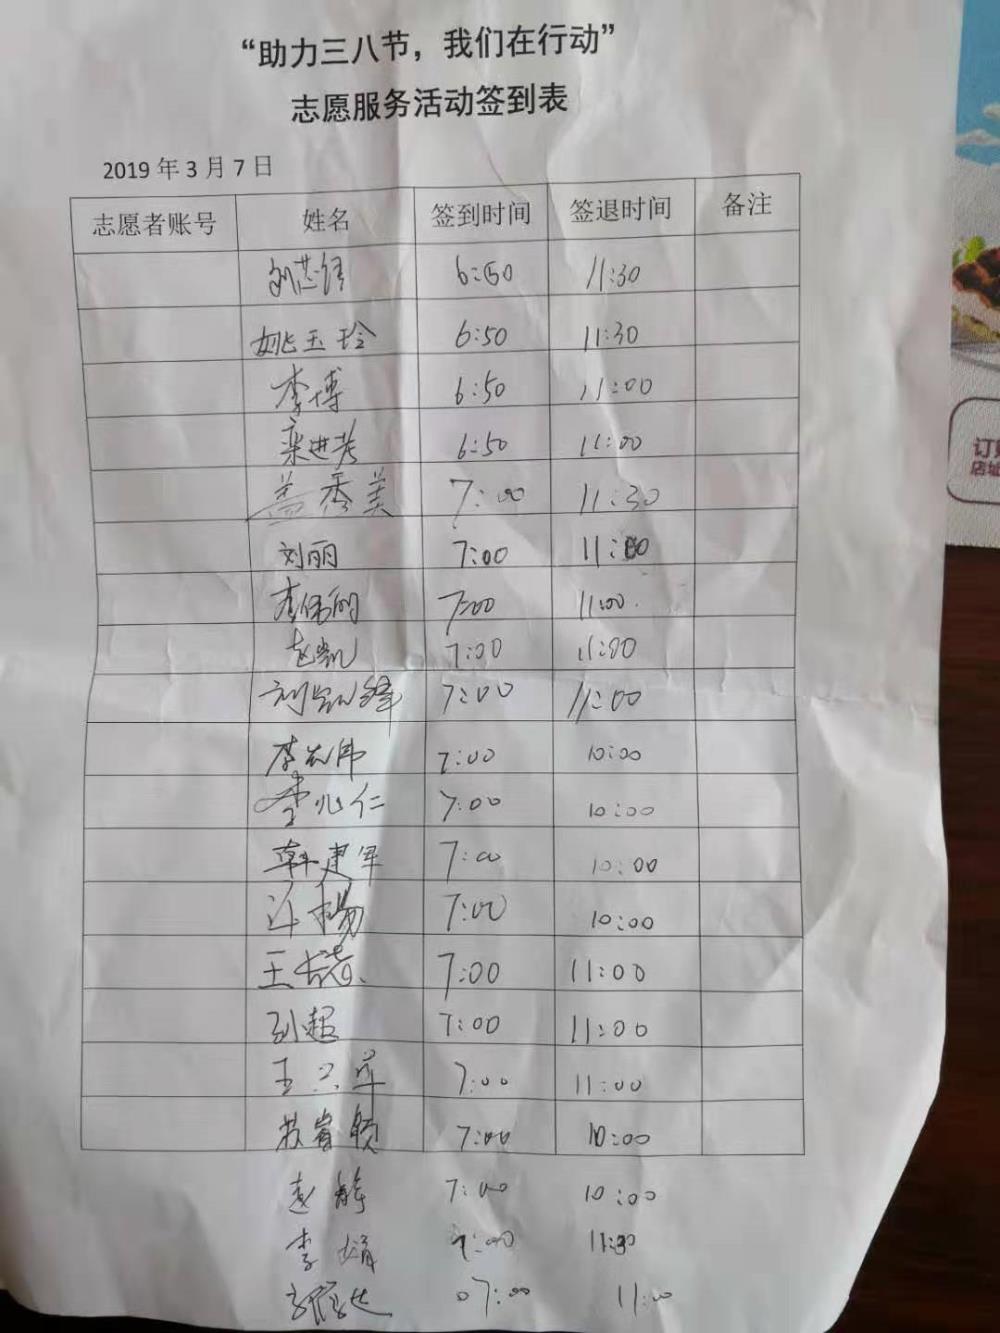 “助力三八节，我们在行动”
志愿服务活动签到表
2019 年 3 月 7 日
志愿者账号 姓名 签到时间 签退时间 备注
6:50 11:30
姚玉玲 6:50 11:30
李博 6:50 11:00
栾进芳 6:50 11:00
盖秀美 7:00 11:30
刘丽 7:00
李伟丽 7:00 11:00
赵凯 7:00 11:00
刘凯锋 7:00 11:00
李志伟 7:00 10:00
李兆仁 7:00 10:00
韩建军 7:00 10:00
许杨 7:00 10:00
王 7:00 11:00
刘超 7:00 11:00
王 7:00 11:00
苏 7:00 10:00
赵静 7:00 10:00
李娟 7:00 11:30
07:00 11:00
订
店